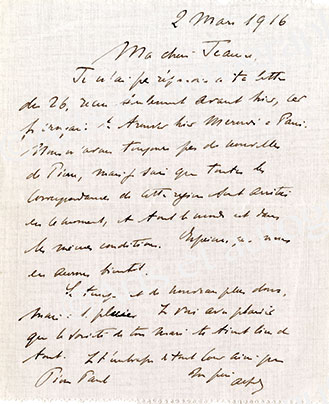 2 Mars 1916
Ma chère Jeanne,
Je n'ai pas répondu à ta lettre
du 26, reçue seulement avant hier, car
j'ai hier Mercredi à Paris.
Nous n'avons toujours pas de nouvelles
de Pierre, mais je sais que toutes les
correspondances de cette région sont arrêtées
en ce moment, et tout le monde est dans
les mêmes conditions. Espérons, que nous
en aurons bientôt.
Le temps est de nouveau plus doux,
mais il pleut. Je vois avec plaisir
que la santé de ton mari te tient lieu de
tout. Je t'embrasse et tout cour ainsi que
Pierre Paul